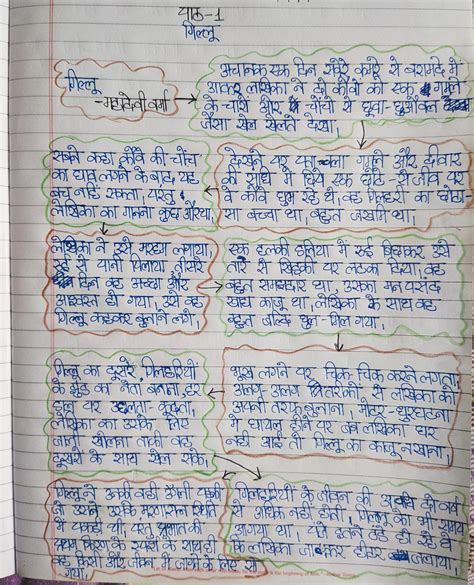 पाठ-1
गिल्लू
गिल्लू
- महादेवी वर्मा
अचानक एक दिन सवेरे कमरे से बरामदे में
आकर लेखिका ने दो कौवों को एक गमले
के चारों ओर चोंचों से छूवा-छुऔवल
जैसा खेल खेलते देखा।
देखने पर पता चला गमले और दीवार
की संधि में छिपे एक छोटे से जीव पर
वे कौवे घुम रहे थे, वह गिलहरी का छोटा
सा बच्चा था, बहुत जखमी था।
सबने कहा कौवे की चोंच
का घाव लगने के बाद, यह
बच नहीं सकता, परंतु
लेखिका का मानना कुछ और था।
लेखिका ने उसे मरहम लगाया,
रुई से पानी पिलाया, तीसरे
दिन वह अच्छा और
आश्वस्त हो गया, उसे वह
गिल्लू कहकर बुलाने लगी।
एक हलकी डलिया में रुई बिछाकर उसे
तार से खिड़की पर लटका दिया, वह
बहुत समझदार था, उसका मन पसंद
खाद्य काजू था। लेखिका के साथ वह
बहुत जल्दि घुल-मिल गया।
भूख लगने पर चिक चिक करने लगता,
अलग अलग तरीकों से लेखिका को
अपनी तरफ बुलाना, मोटर-दुरघटना
में घायल होने पर जब लेखिका घर
नहीं आई तो गिल्लू का काजू न खाना।
गिल्लू का दुसरे गिलहरियों
के झुंड का नेता बनाना, हर
डाल पर उछलना-कूदना,
लेखिका का उसके लिए
जाली खोलना ताकी वह
दूसरो के साथ खेल सके।
गिलहरियों के जीवन की अवधि दो वर्ष
से अधिक नहीं होती। गिल्लू का भी समय
आ गया था। पंजे इतने ठंडे हो रहे थे
की लेखिका जागकर हीटर जलाया।
गिल्लू ने उनकी वही उँगली पकड़ी
जो उसने उसके मरणासन्न स्थिति
में पकड़ी थी, परंतु प्रभात की
प्रथम किरण के स्पर्श के साथ ही
वह किसी और जीवन में जागने के लिए सो
गया।